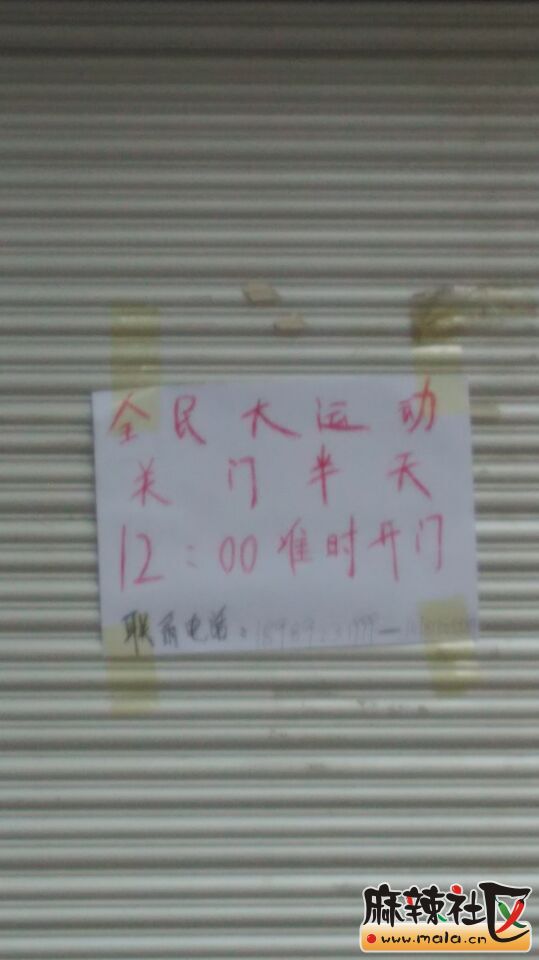 全民大运动
关门半天
12:00准时开门
联系电话:
麻辣社区
www.mala.cn